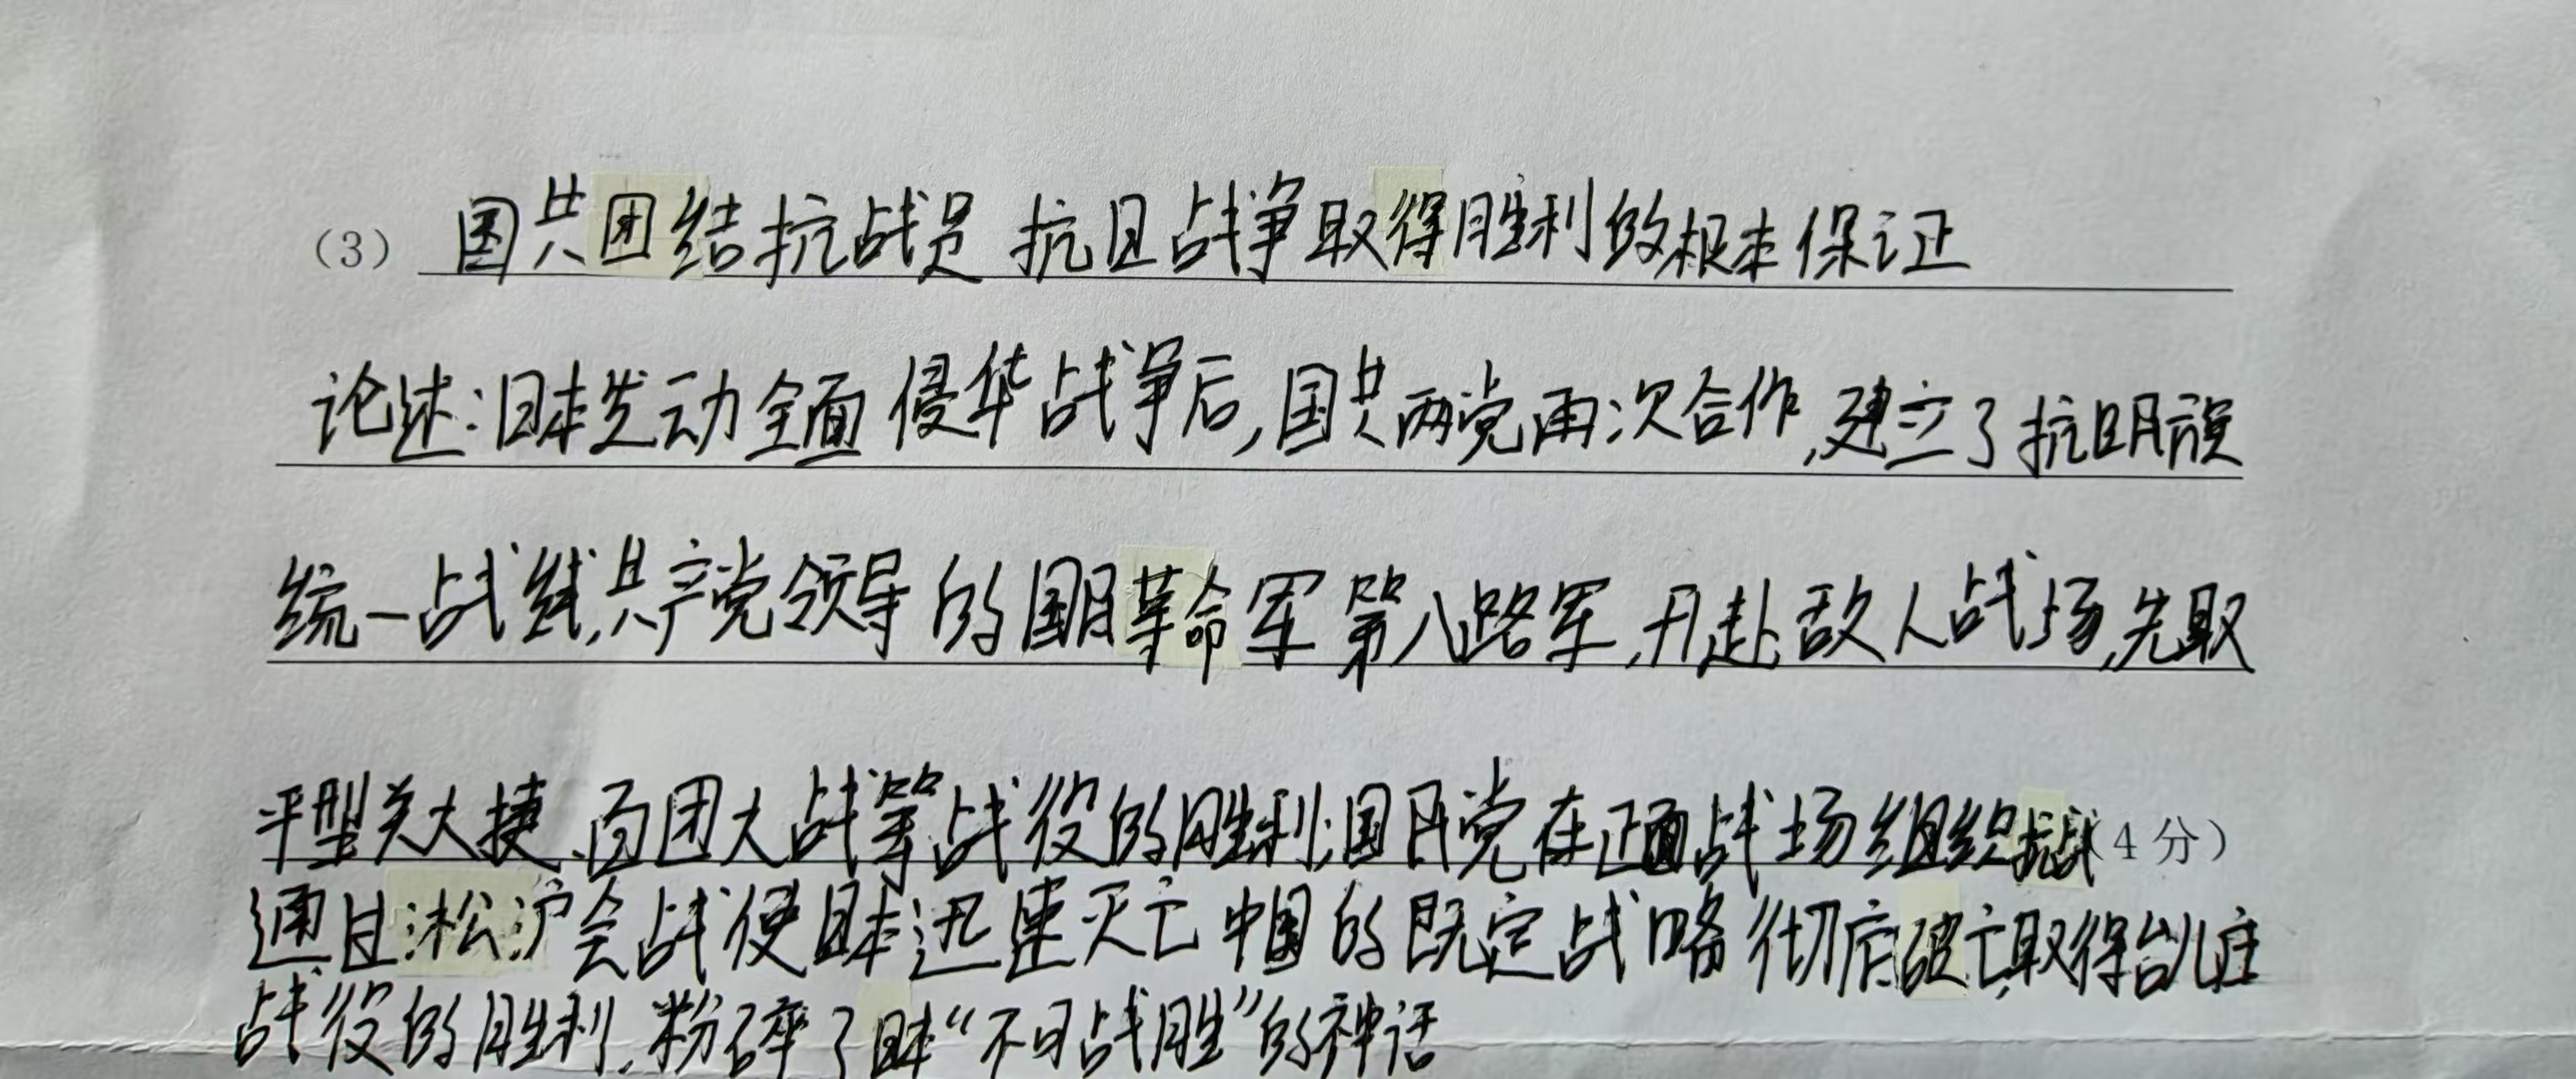 (3) 国共团结抗战是抗日战争取得胜利的根本保证
论述:日本发动全面侵华战争后,国共两党再次合作,建立了抗日民族
统一战线,共产党领导的国民革命军第八路军,开赴敌人战场,先取
平型关大捷、百团大战等战役的胜利;国民党在正面战场组织抗战(4分)
通过淞沪会战使日本迅速灭亡中国的既定战略彻底破亡,取得台儿庄
战役的胜利,粉碎了日本“不可战胜”的神话